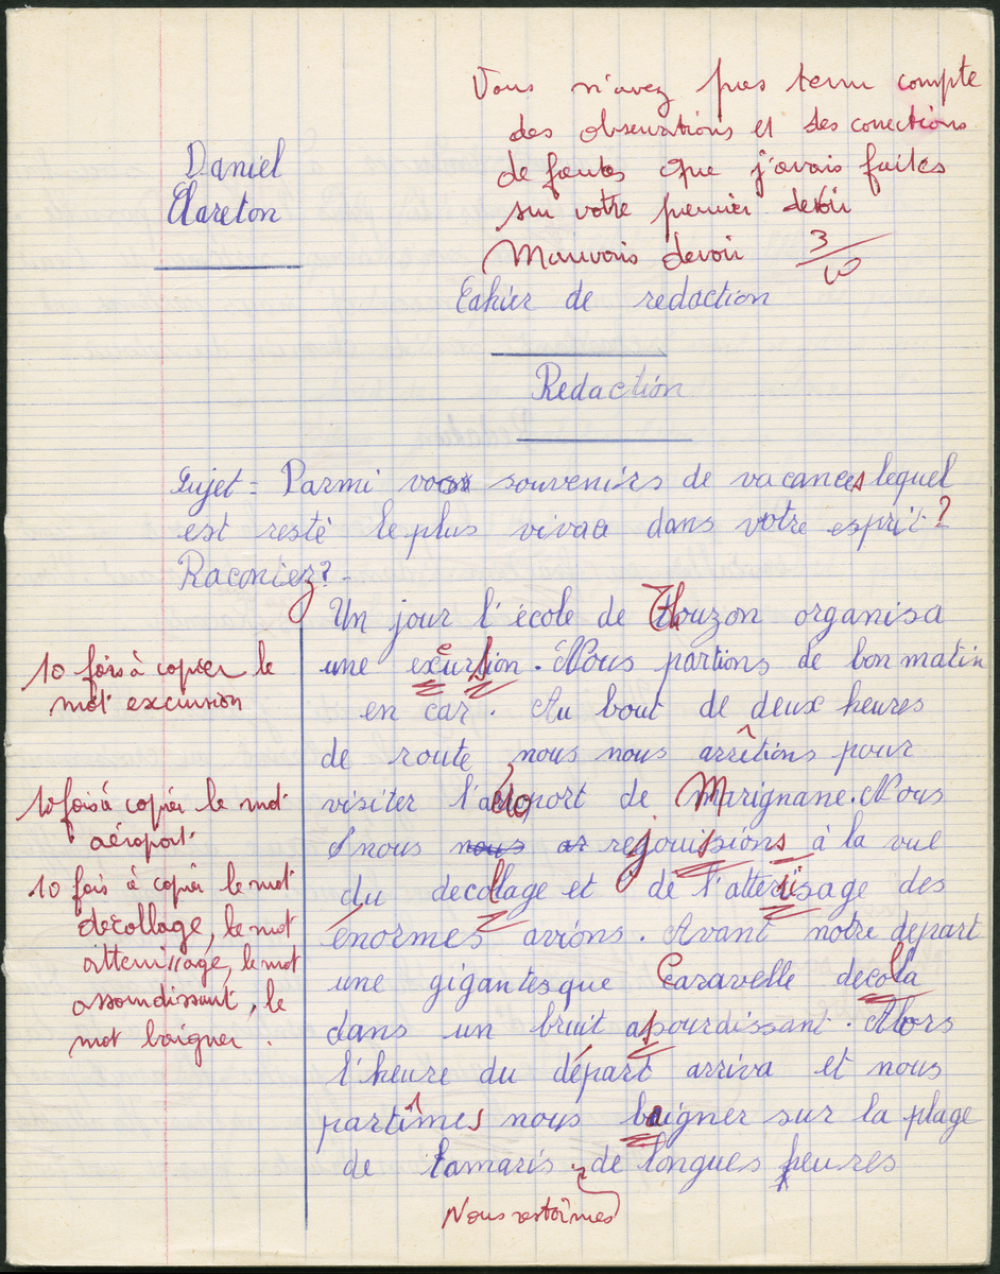 Vous n'avez pas tenu compte
des observations et des corrections
de fautes que j'avais faites
sur votre premier devoir
Mauvais devoir 3/10
Daniel
Clareton
Cahier de redaction
Redaction
Sujet = Parmi vos souvenirs de vacances lequel
est resté le plus vivaa dans votre esprit?
Raconiez?
Un jour l'école de Thouzon organisa
une excursion. Nous partions de bon matin
en car. Au bout de deux heures
de route, nous nous arrêtions pour
visiter l'aéroport de Marignane. Nous
nous nous ar rejouissions à la vue
du decollage et de l'atterissage des
énormes avions. Avant notre depart
une gigantesque Caravelle decola
dans un bruit assourdissant. Alors
l'heure du départ arriva et nous
partîmes nous baigner sur la plage
de tamaris, de longues heures
Nous restâimes
10 fois à copier le
mot excursion
10 fois à copier le mot
aéroport.
10 fois à copier le mot
décollage, le mot
atterrissage, le mot
assourdissant, le
mot baigner.